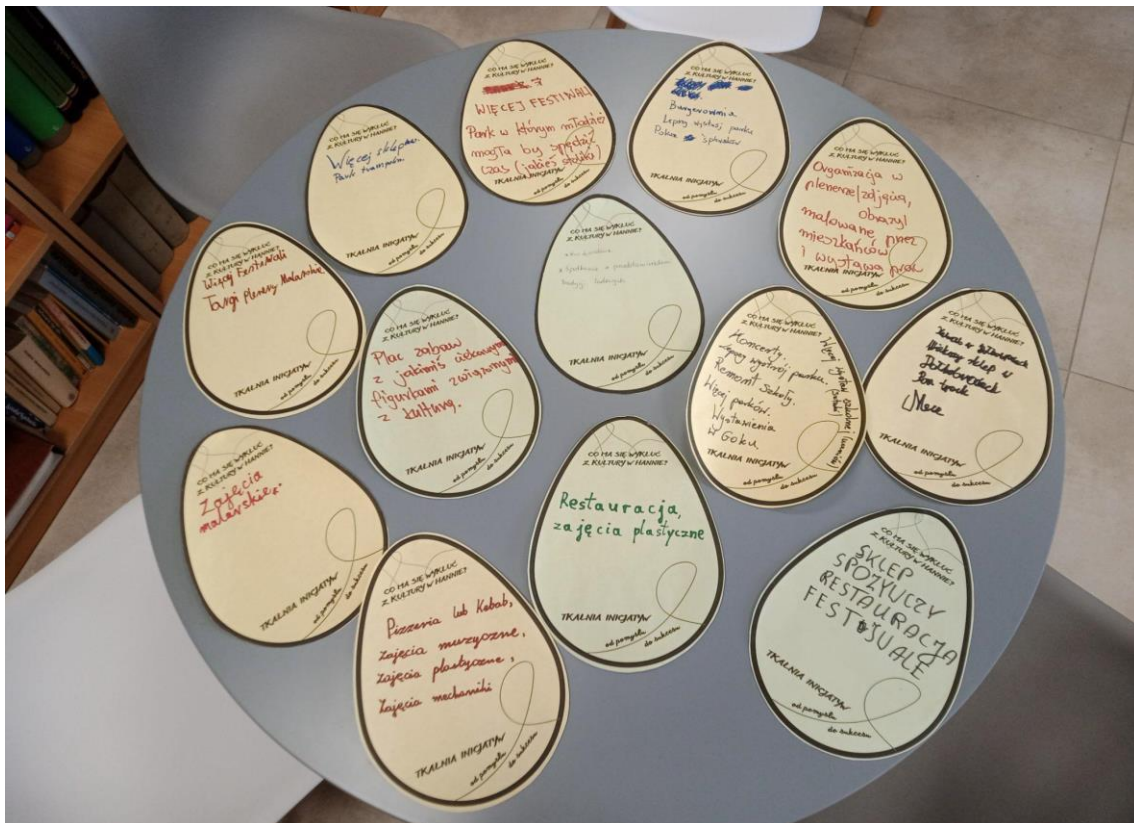 CO MA SIĘ WYKLUĆ
Z KULTURY W HANNIE?
WIĘCEJ FESTIWALI
Park w którym młodzież
mogła by spędzić
czas (jakieś stoliki)
TKALNIA INICJATYW
od pomysłu do sukcesu
CO MA SIĘ WYKLUĆ
Z KULTURY W HANNIE?
Burgerownia
Lepszy wystój parku
Pokaz śpiewaków
TKALNIA INICJATYW
od pomysłu do sukcesu
CO MA SIĘ WYKLUĆ
Z KULTURY W HANNIE?
Więcej sklepów.
Park trampolin.
TKALNIA INICJATYW
od pomysłu do sukcesu
CO MA SIĘ WYKLUĆ
Z KULTURY W HANNIE?
Organizacja w
plenerze/zdjęcia,
obrazy/
malowane przez
mieszkańców
i wystawa prac
TKALNIA INICJATYW
od pomysłu do sukcesu
CO MA SIĘ WYKLUĆ
Z KULTURY W HANNIE?
Więcej Festiwali
Targi plenery Malarskie
TKALNIA INICJATYW
od pomysłu do sukcesu
CO MA SIĘ WYKLUĆ
Z KULTURY W HANNIE?
Plac zabaw
z jakimiś ciekawymi
figurkami związanymi
z kulturą.
TKALNIA INICJATYW
od pomysłu do sukcesu
CO MA SIĘ WYKLUĆ
Z KULTURY W HANNIE?
TKALNIA INICJATYW
od pomysłu do sukcesu
CO MA SIĘ WYKLUĆ
Z KULTURY W HANNIE?
Koncerty,
Lepszy wystrój parku,
Remont szkoły.
Więcej parków.
Wystawienia
w Goku
Więcej wystaw szkolnej
TKALNIA INICJATYW
od pomysłu do sukcesu
CO MA SIĘ WYKLUĆ
Z KULTURY W HANNIE?
sklep w
TKALNIA INICJATYW
od pomysłu do sukcesu
CO MA SIĘ WYKLUĆ
Z KULTURY W HANNIE?
Zajęcia
malarskie.
TKALNIA INICJATYW
od pomysłu do sukcesu
CO MA SIĘ WYKLUĆ
Z KULTURY W HANNIE?
Restauracja,
zajęcia plastyczne
TKALNIA INICJATYW
od pomysłu do sukcesu
CO MA SIĘ WYKLUĆ
Z KULTURY W HANNIE?
Pizzeria lub Kebab,
Zajęcia muzyczne,
Zajęcia plastyczne,
Zajęcia mechaniki
TKALNIA INICJATYW
od pomysłu do sukcesu
CO MA SIĘ WYKLUĆ
Z KULTURY W HANNIE?
SKLEP
SPOŻYWCZY
RESTAURACJA
TKALNIA INICJATYW
od pomysłu do sukcesu